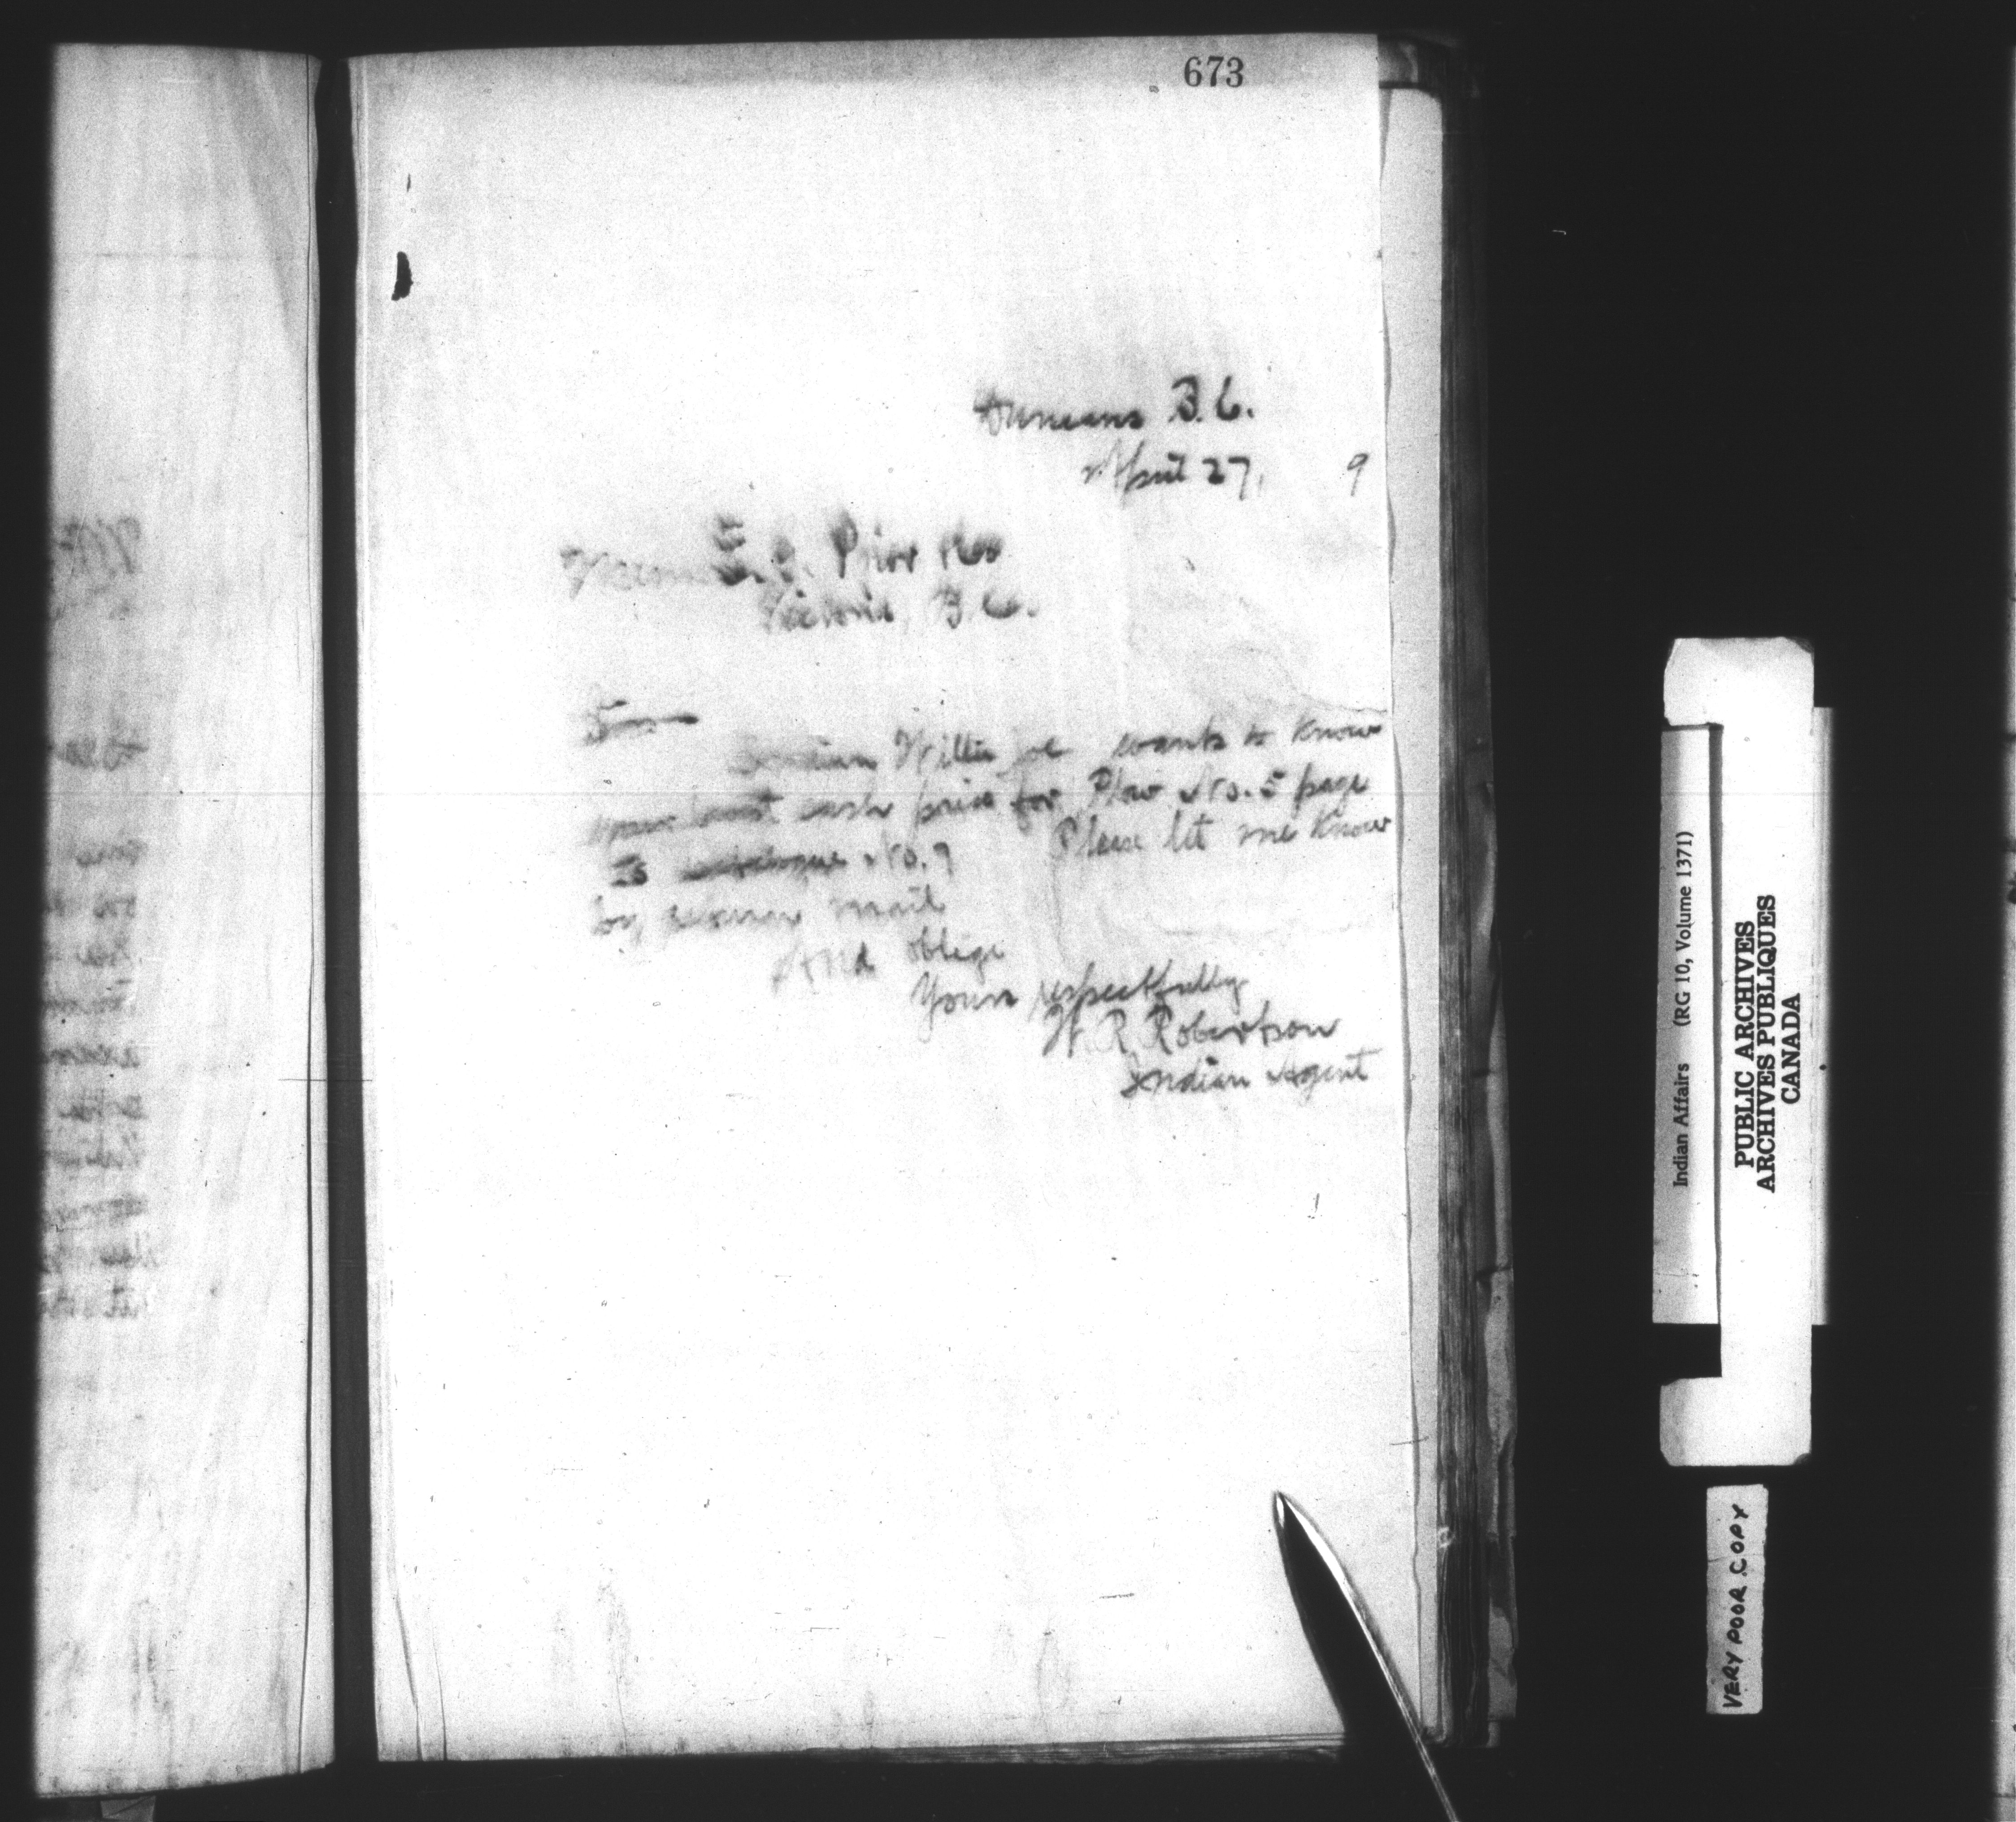 673
Duncans B.C.
April 27, 9
Messrs E. G. Prior & Co
Victoria, B.C.
Sirs
Indian Willie Joe wants to know
your best cash price for Plow No. 5 page
catalogue No. 9 Please let me know
by return mail
And oblige
Yours respectfully
W. R. Robertson
Indian Agent
Indian Affairs (RG 10, Volume 1371)
PUBLIC ARCHIVES
ARCHIVES PUBLIQUES
CANADA
VERY POOR COPY